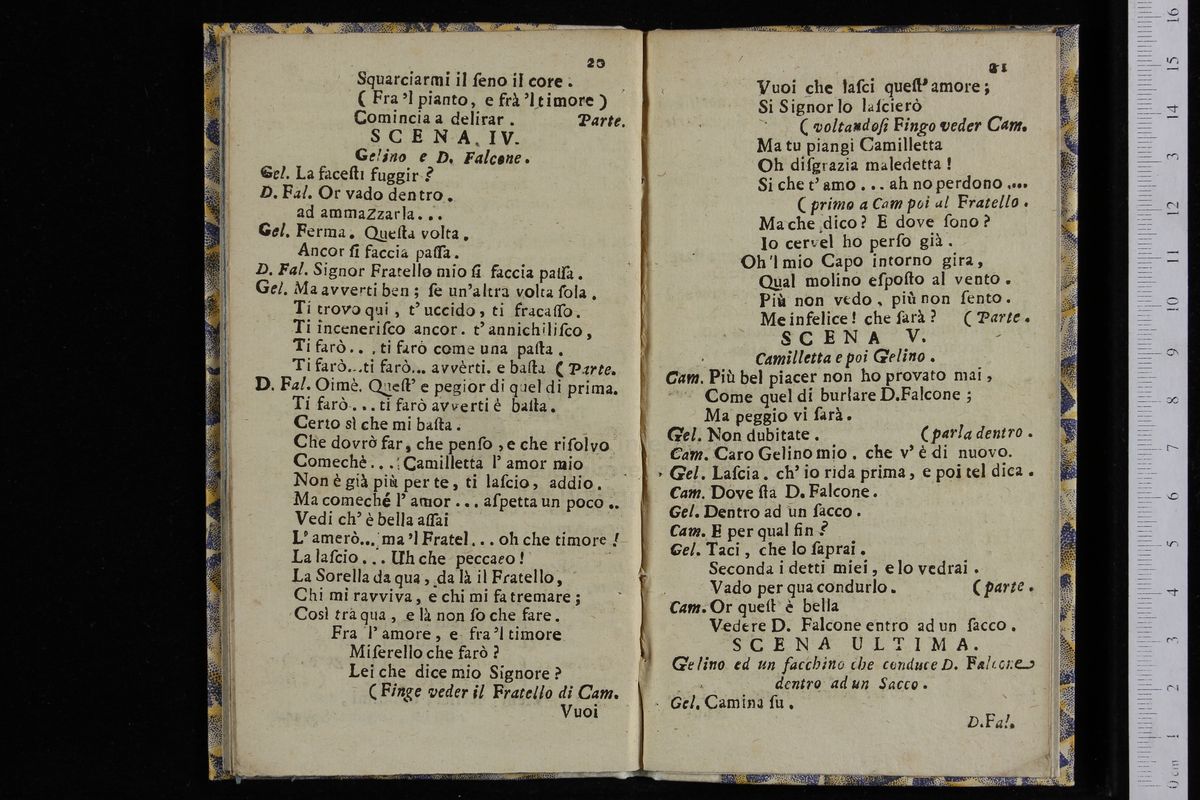 20
Squarciarmi il ſeno il core .
( Fra 'l pianto, e frà 'l timore )
Comincia a delirar . Parte.
SCENA. IV.
Gelino e D. Falcone .
Gel. La faceſti fuggir ?
D. Fal. Or vado dentro .
ad ammaZzarla...
Gel. Ferma. Queſta volta .
Ancor ſi faccia paſſa .
D. Fal. Signor Fratello mio ſi faccia paſſa .
Gel. Ma avverti ben ; ſe un'altra volta ſola .
Ti trovo qui , t' uccido, ti fracaſſo.
Ti inceneriſco ancor. t' annichiliſco ,
Ti farò.. . ti farò come una paſta .
Ti farò...ti farò... avvèrti. e baſta ( Parte.
D. Fal. Oimè. Queſt' e pegior di quel di prima.
Ti farò...ti farò avverti è baſta.
Certo sì che mi baſta .
Che dovrò far, che penſo , e che riſolvo
Comechè... Camilletta l' amor mio
Non è già più per te, ti laſcio, addio .
Ma comeché l' amor ... aſpetta un poco ..
Vedi ch' è bella aſſai
L' amerò... ma 'l Fratel... oh che timore !
La laſcio... Uh che peccaeo !
La Sorella da qua , da là il Fratello,
Chi mi ravviva, e chi mi fa tremare ;
Così trà qua , e là non ſo che fare .
Fra l' amore, e fra 'l timore
Miſerello che farò ?
Lei che dice mio Signore ?
( Finge veder il Fratello di Cam.
Vuoi
21
Vuoi che laſci queſt' amore ;
Si Signor lo laſcierò
( voltandoſi Fingo veder Cam.
Ma tu piangi Camilletta
Oh diſgrazia maledetta !
Si che t' amo ... ah no perdono ....
( primo a Cam poi al Fratello .
Ma che dico ? E dove ſono ?
Io cervel ho perſo già .
Oh 'l mio Capo intorno gira ,
Qual molino eſpoſto al vento .
Più non vedo , più non ſento .
Me infelice ! che ſarà ? ( Parte .
SCENA V.
Camilletta e poi Gelino .
Cam. Più bel piacer non ho provato mai ,
Come quel di burlare D.Falcone ;
Ma peggio vi ſarà .
Gel. Non dubitate . ( parla dentro .
Cam. Caro Gelino mio . che v' è di nuovo.
Gel. Laſcia. ch' io rida prima , e poi tel dica .
Cam. Dove ſta D. Falcone .
Gel. Dentro ad un ſacco .
Cam. E per qual fin ?
Gel. Taci , che lo ſaprai .
Seconda i detti miei , e lo vedrai .
Vado per qua condurlo . ( parte .
Cam. Or queſt è bella
Vedere D. Falcone entro ad un ſacco .
SCENA ULTIMA.
Gelino ed un facchino che conduce D. Falcone
dentro ad un Sacco .
Gel. Camina ſu .
D.Fal.